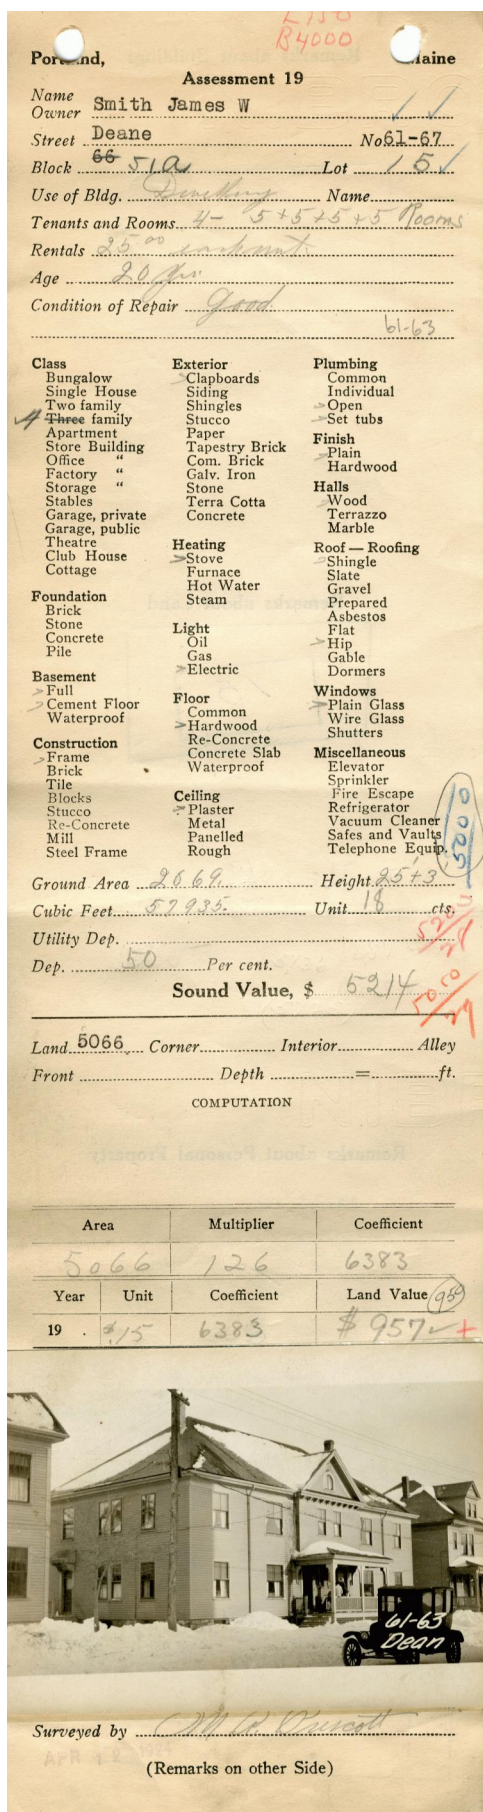 L750
B4000
Portland, Maine
Assessment 19
Name
Owner Smith James W
Street Deane No 61-67
Block 66 51a Lot 15
Use of Bldg. Dwelling Name
Tenants and Rooms 4- 5+5+5+5 Rooms
Rentals 25 00
Age 20 yrs.
Condition of Repair Good
61-63
Class
Bungalow
Single House
Two family
4 Three family
Apartment
Store Building
Office "
Factory "
Storage "
Stables
Garage, private
Garage, public
Theatre
Club House
Cottage
Foundation
Brick
Stone
Concrete
Pile
Basement
Full
Cement Floor
Waterproof
Construction
Frame
Brick
Tile
Blocks
Stucco
Re-Concrete
Mill
Steel Frame
Exterior
Clapboards
Siding
Shingles
Stucco
Paper
Tapestry Brick
Com. Brick
Galv. Iron
Stone
Terra Cotta
Concrete
Heating
Stove
Furnace
Hot Water
Steam
Light
Oil
Gas
Electric
Floor
Common
Hardwood
Re-Concrete
Concrete Slab
Waterproof
Ceiling
Plaster
Metal
Panelled
Rough
Plumbing
Common
Individual
Open
Set tubs
Finish
Plain
Hardwood
Halls
Wood
Terrazzo
Marble
Roof — Roofing
Shingle
Slate
Gravel
Prepared
Asbestos
Flat
Hip
Gable
Dormers
Windows
Plain Glass
Wire Glass
Shutters
Miscellaneous
Elevator
Sprinkler
Fire Escape
Refrigerator
Vacuum Cleaner
Safes and Vaults
Telephone Equip.
5000
Ground Area 2669. Height 25+3
Cubic Feet 57935. Unit 18 cts.
Utility Dep.
Dep. 50 Per cent.
Sound Value, $ 5214
Land 5066 Corner Interior Alley
Front Depth = ft.
COMPUTATION
Area Multiplier Coefficient
5066 126 6383
Year Unit Coefficient Land Value 950
19 . $.15 6383 $ 957 +
61-63
Dean
Surveyed by Prescott
APR
(Remarks on other Side)